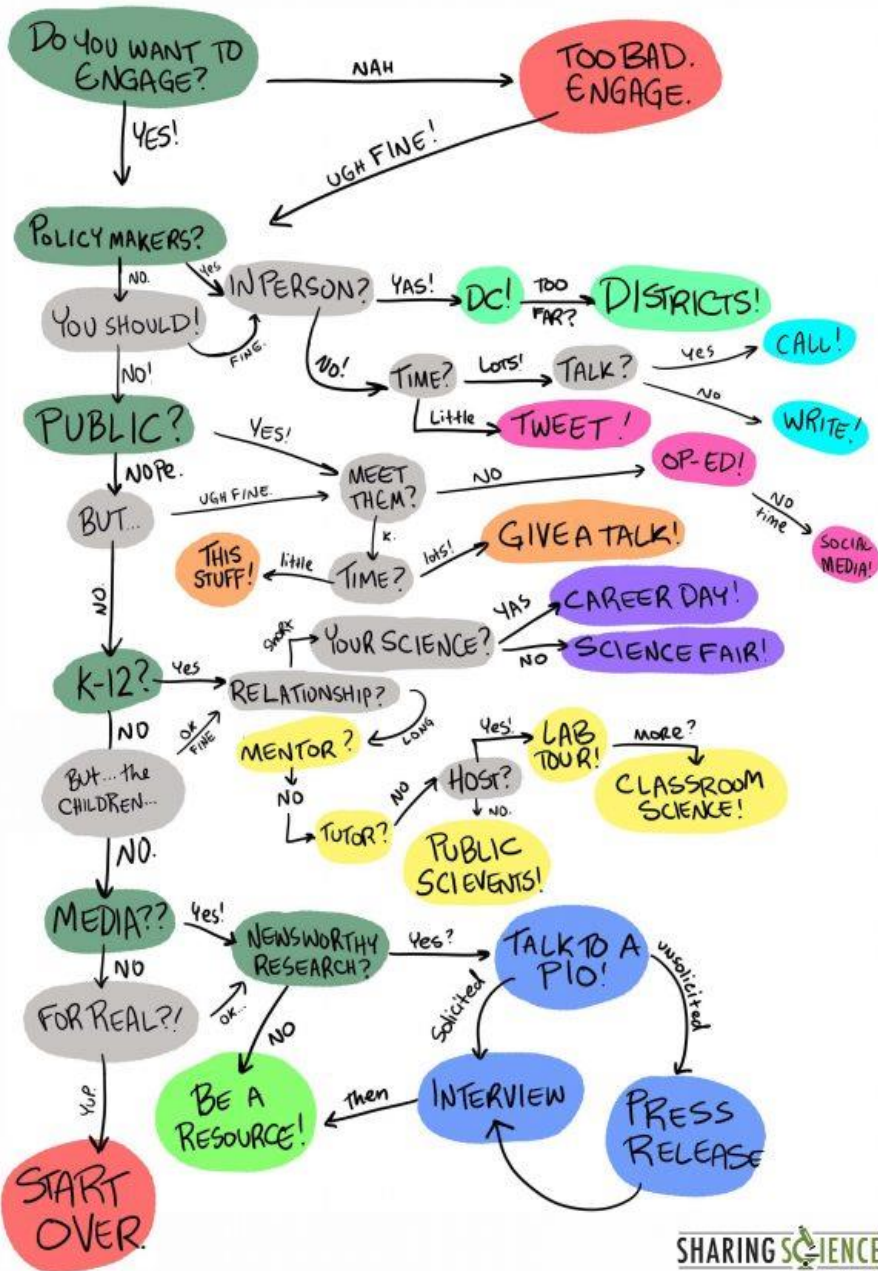 DO YOU WANT TO
ENGAGE?
NAH
TOO BAD.
ENGAGE.
YES!
UGH FINE!
POLICY MAKERS?
NO.
Yes
IN PERSON?
YAS!
DC!
TOO
FAR?
DISTRICTS!
YOU SHOULD!
FINE.
NO!
NO!
TIME?
LOTS!
TALK?
Yes
CALL!
NO
WRITE!
Little
TWEET!
PUBLIC?
YES!
NOPE.
BUT...
UGH FINE.
MEET
THEM?
NO
OP-ED!
NO
time
SOCIAL
MEDIA!
K.
TIME?
little
THIS
STUFF!
lots!
GIVE A TALK!
NO.
K-12?
Yes
RELATIONSHIP?
SHORT
YOUR SCIENCE?
YAS
CAREER DAY!
NO
SCIENCE FAIR!
LONG
MENTOR?
NO
TUTOR?
NO
HOST?
Yes!
LAB
TOUR!
MORE?
CLASSROOM
SCIENCE!
NO.
PUBLIC
SCI EVENTS!
NO
OK
FINE
BUT...the
CHILDREN...
NO.
MEDIA??
Yes!
NEWSWORTHY
RESEARCH?
Yes?
TALK TO A
PIO!
Solicited
unsolicited
NO
FOR REAL?!
OK...
NO
BE A
RESOURCE!
Then
INTERVIEW
PRESS
RELEASE
YUP.
START
OVER.
SHARING SCIENCE